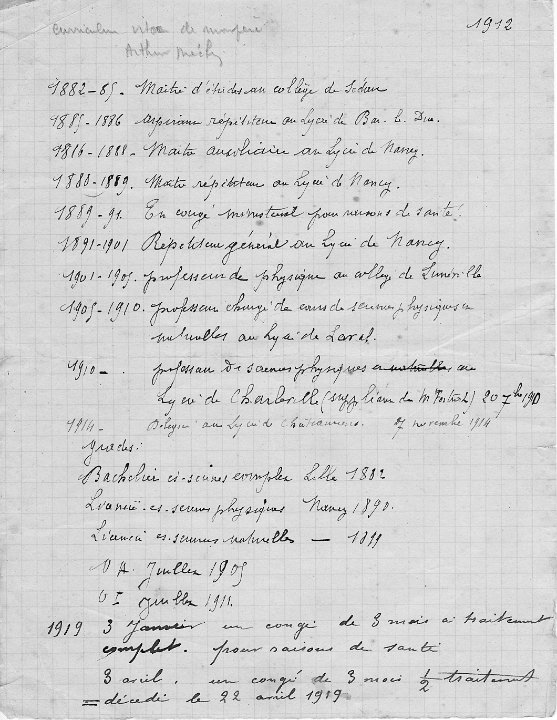 1912
Curriculum vitae de mon père
Arthur
1882-85. Maitre d'études au collège de Sedan
1885-1886 aspirant répétiteur au Lycée de Bar-le-Duc.
1886-1888- Maitre auxiliaire au Lycée de Nancy.
1888-1889. Maitre répétiteur au Lycée de Nancy.
1889-91. En congé ministériel pour raisons de santé.
1891-1901 Répétiteur général au Lycée de Nancy.
1901-1905. professeur de physique au collège de Lunéville
1905-1910. professeur chargé de cours de sciences physiques et
naturelles au Lycée de Laval.
1910- professeur de sciences physiques et naturelles au
Lycée de Charleville (suppléance de Mr ) 20 7bre 190
1914- Délégué au Lycée de Châteauroux. 27 novembre 1914
Grades:
Bachelier ès-sciences complet Lille 1882
Licencié-ès-sciences physiques Nancy 1890.
Licencié ès-sciences naturelles — 1899
V H. Juillet 1905
O I Juillet 1911.
1919 3 Janvier un congé de 3 mois à traitement
complet. pour raisons de santé
3 avril. un congé de 3 mois 1/2 traitement
= décédé le 22 avril 1919